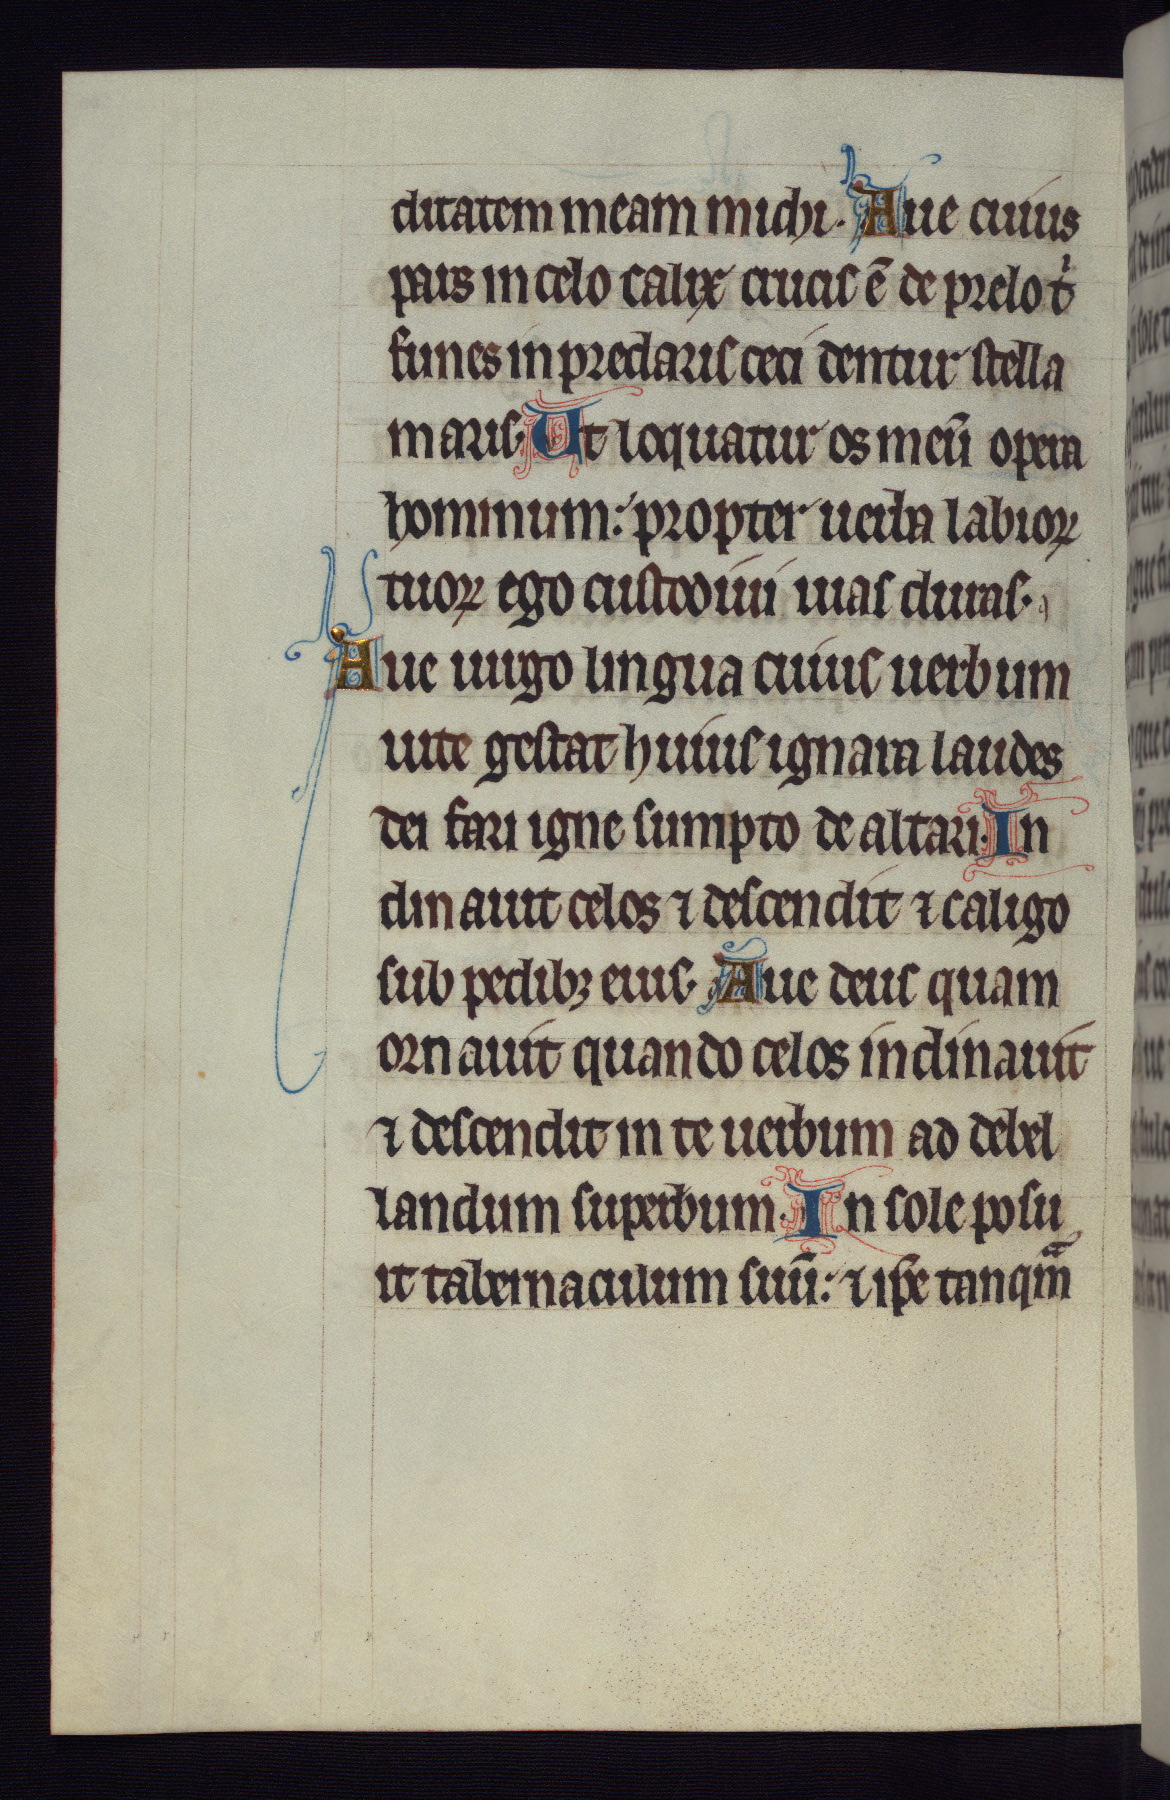 ditatem meam michi. Aue cuius
pars in celo calix crucis ē de prelo tⁱ
funes in preclaris ceci dentur stella
maris. Ut loquatur os meū opera
hominum: propter uerba labioꝝ
tuoꝝ ego custodiui uias duras.
Aue uirgo lingua cuius uerbum
uite gestat huius ignara laudes
dei fari igne sumpto de altari. In
clinauit celos ⁊ descendit ⁊ caligo
sub pedibꝫ eius. Aue deus quam
ornauit quando celos inclinauit
⁊ descendit in te uerbum ad debel
landum superbum. In sole posu
it tabernaculum suū: ⁊ ip̄e tanqm̄